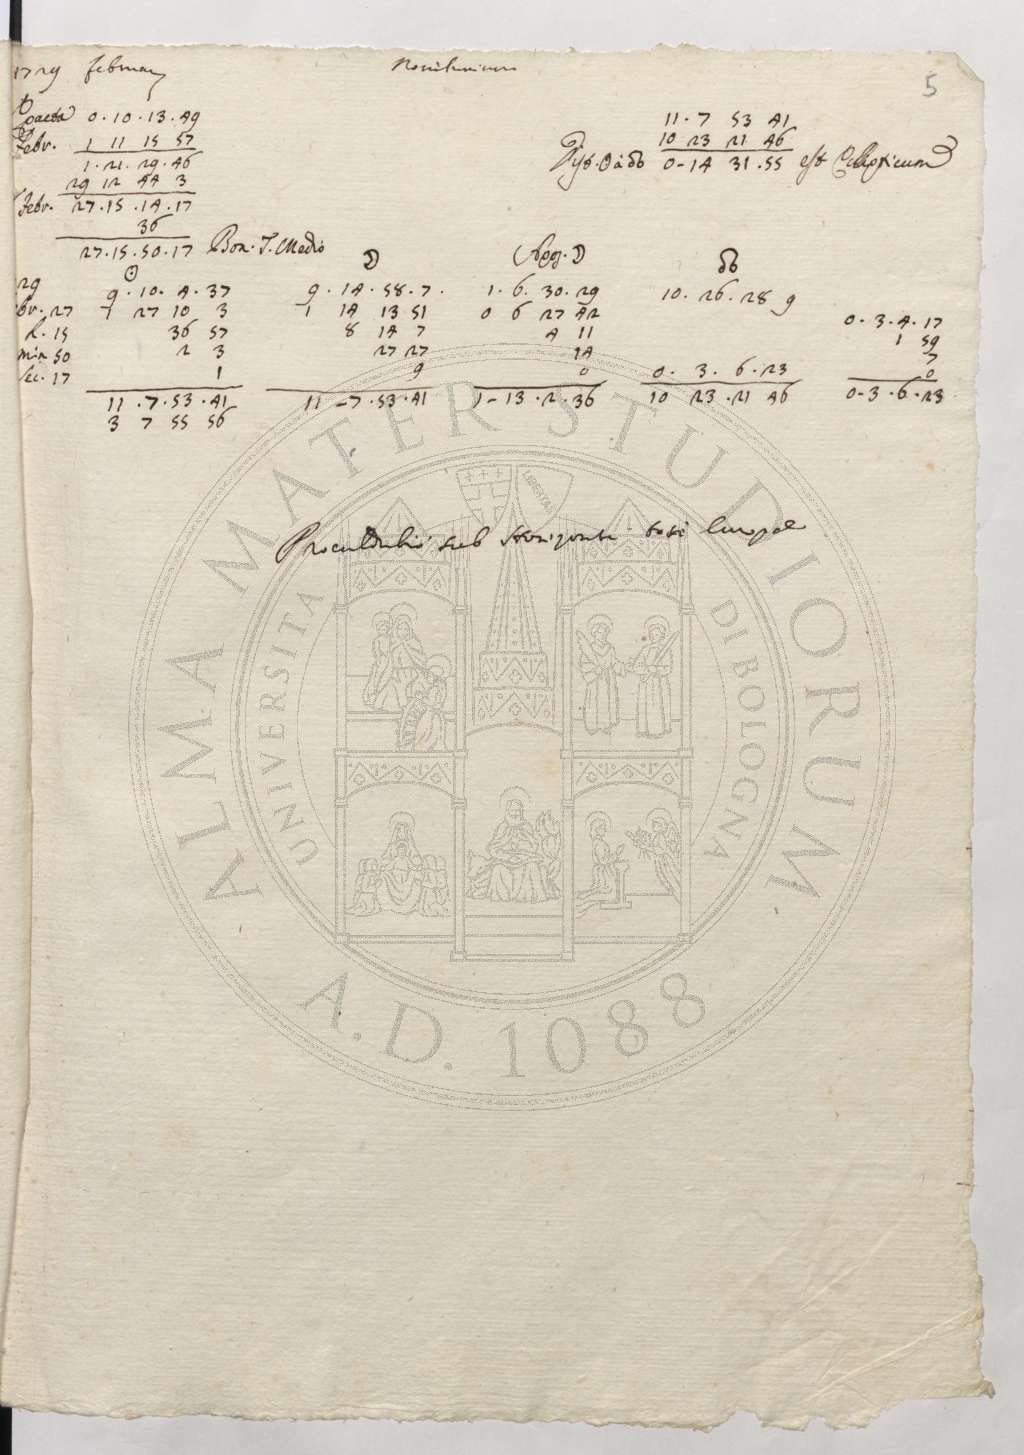 1729 february Novilunium
5
Epacta 0 · 10 · 13 · 49
Febr. 1 11 15 57
1 · 21 · 29 · 46
29 12 44 3
Febr. 27 · 15 · 14 · 17
36
27 · 15 · 50 · 17 Bon. T. Medio
11 · 7 53 41
10 23 21 46
Dist. ☉ à ☊ 0 - 14 31 · 55 est Eclipticum
☉ ☽ Apog. ☽ ☊
29 9 · 10 · 4 · 37 9 · 14 · 58 · 7 · 1 · 6 · 30 · 29 10 · 26 · 28 9
br. 27 1 27 10 3 1 14 13 51 0 6 27 42 0 · 3 · 4 · 17
h. 15 36 57 8 14 7 4 11 1 59
min 50 2 3 27 27 14 7
Sec. 17 1 9 0 0 · 3 · 6 · 23 0
11 · 7 · 53 · 41 11 - 7 · 53 · 41 1 - 13 · 2 · 36 10 23 · 21 46 0 - 3 · 6 · 23
3 7 55 56
Proculdubio sub Horizonte toti Europae
ALMA MATER STUDIORUM
UNIVERSITA DI BOLOGNA
LIBERTAS
A.D. 1088